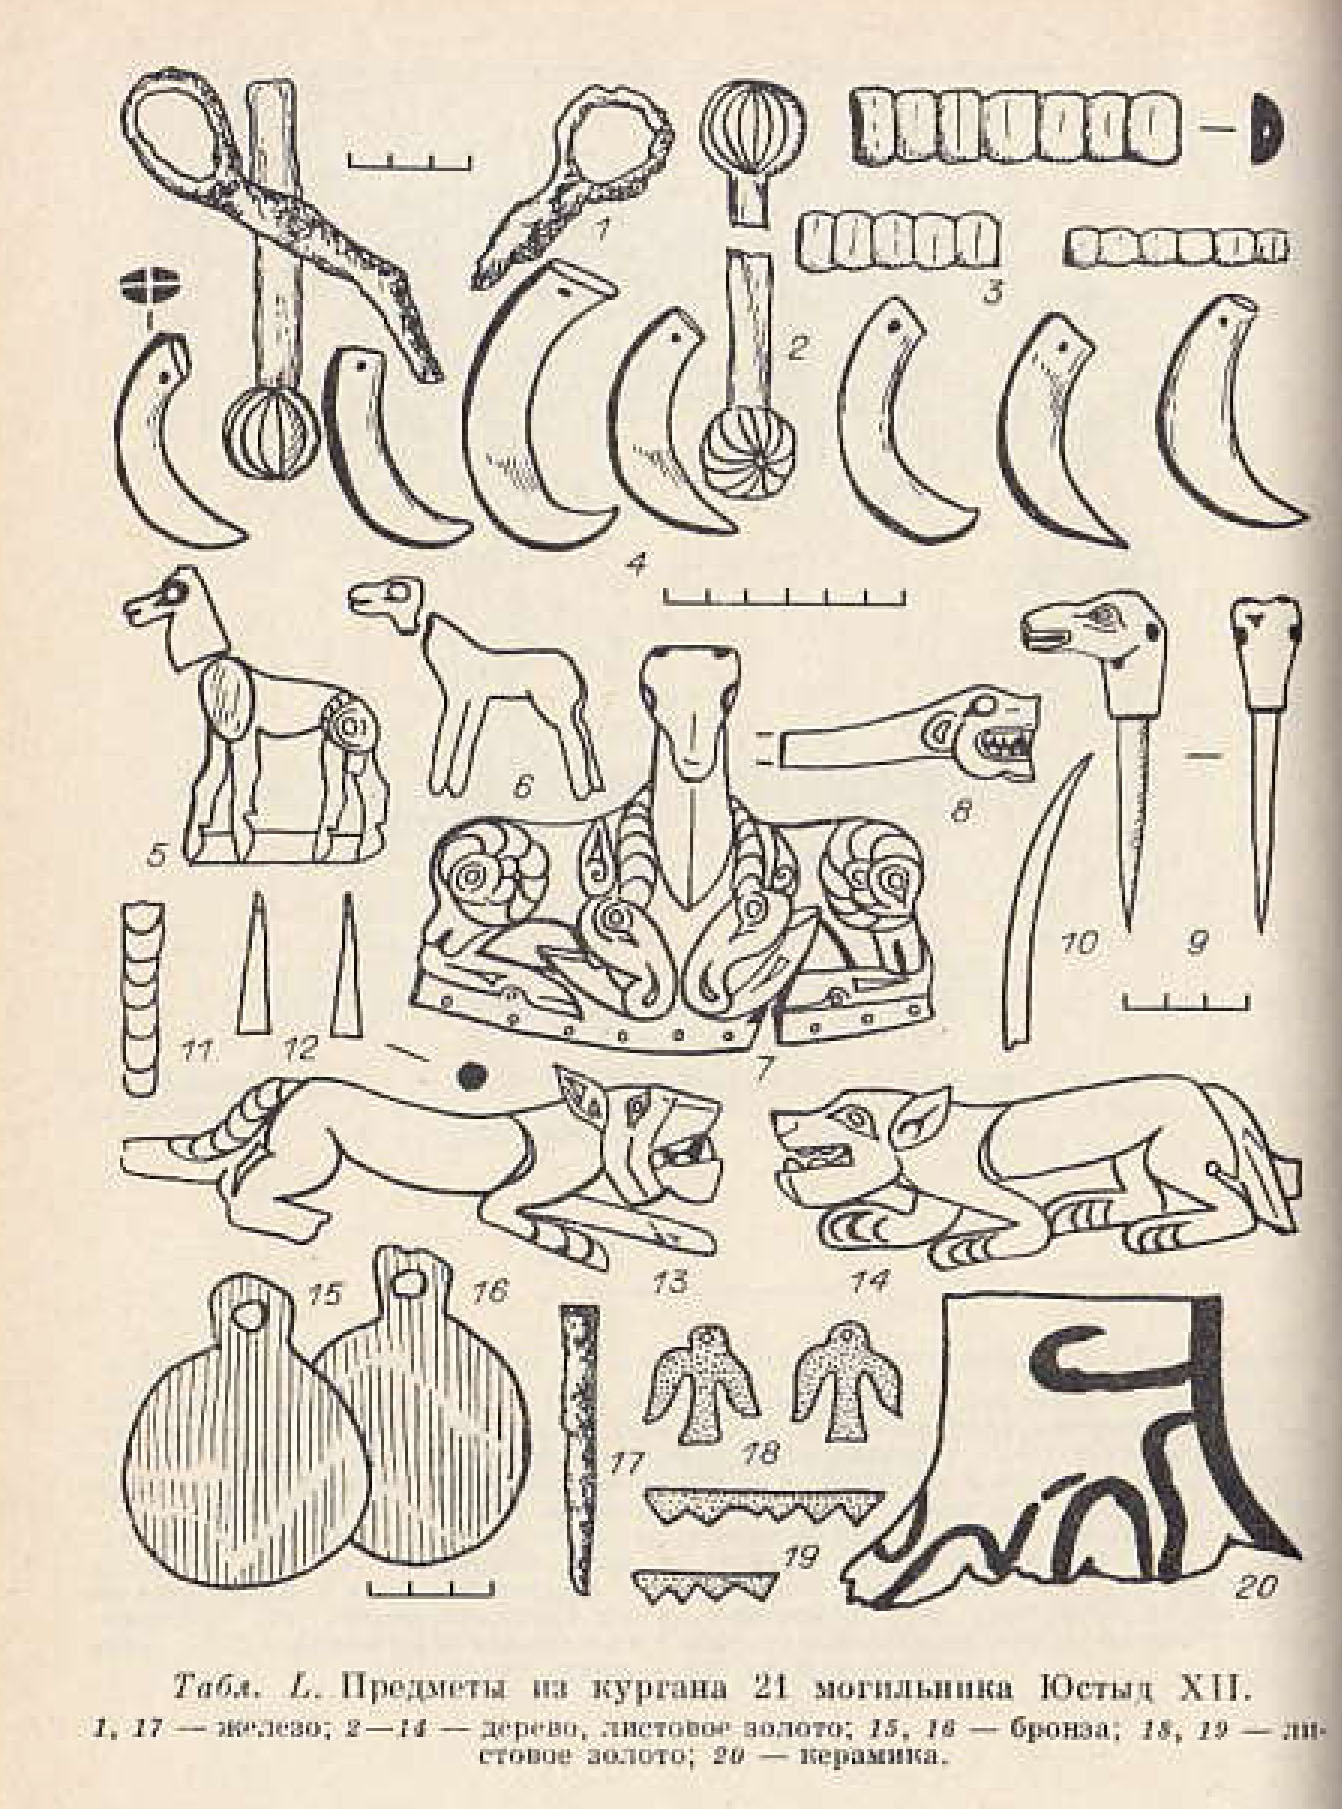 1
2
3
4
5
6
7
8
10
9
11
12
13
14
15
16
17
18
19
20
Табл. L. Предметы из кургана 21 могильника Юстыд XII.
1, 17 — железо; 2—14 — дерево, листовое золото; 15, 16 — бронза; 18, 19 — ли-
стовое золото; 20 — керамика.